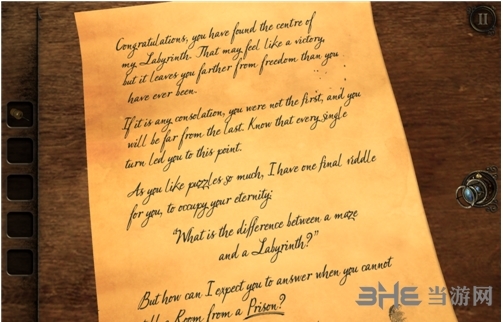 Congratulations, you have found the centre of
my Labyrinth. That may feel like a victory,
but it leaves you farther from freedom than you
have ever been.
If it is any consolation, you were not the first, and you
will be far from the last. Know that every single
turn led you to this point.
As you like puzzles so much, I have one final riddle
for you, to occupy your eternity:
"What is the difference between a maze
and a Labyrinth?"
But how can I expect you to answer when you cannot
a Room from a Prison?
3HE 当游网